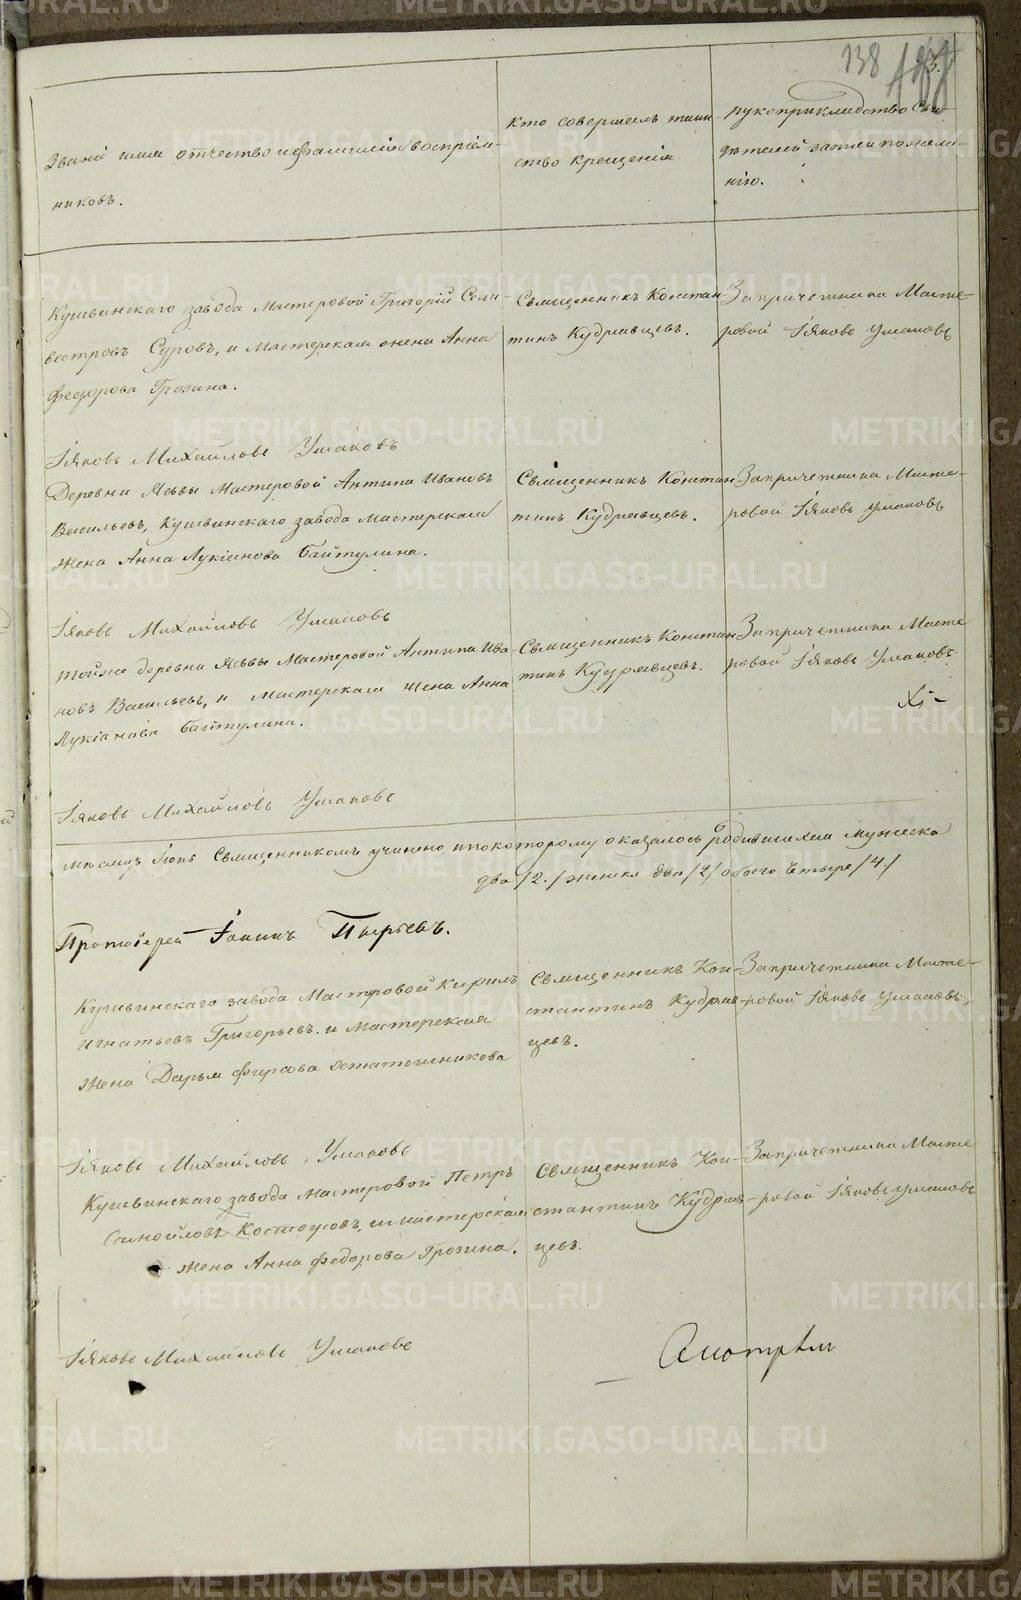 138
Званіе имя отчество и фамилія воспріем-
никовъ.
кто совершалъ таин-
ство крещенія
рукоприкладство сви-
дѣтелей записи по жела-
нію.
Кушвинскаго завода мастеровой Григорій Сели-
вестровъ Суровъ, и Мастерская жена Анна
Федорова Грозина.
Священникъ Констан-
тинъ Кудрявцевъ.
За причетника Масте-
ровой Іяковъ Ушаковъ
Іяковъ Михайловъ Ушаковъ
Деревни Ясьвы Мастеровой Антипа Ивановъ
Васильевъ, Кушвинскаго завода мастерская
жена Анна Лукіанова Байтулина.
Священникъ Констан
тинъ Кудрявцевъ.
За причетника Масте-
ровой Іяковъ Ушаковъ
Іяковъ Михайловъ Ушаковъ
той же деревни Ясьвы Мастеровой Антипа Ива-
новъ Васильевъ, и Мастерская жена Анна
Лукіанова Байтулина.
Священникъ Констан
тинъ Кудрявцевъ.
За причетника Масте
ровой Іяковъ Ушаковъ.
Іяковъ Михайловъ Ушаковъ
мѣсяцъ Священникомъ учинено, по которому оказалось родившихся мужеска
два /2./ женска два /2/ обоего четыре /4./
Протоіерей Іоаннъ Пырьевъ.
Кушвинскаго завода Мастеровой Кирилъ
Игнатьевъ Григорьевъ. и Мастерская
жена Дарья Фирсова Остатошникова
Священникъ Кон-
стантинъ Кудряв-
цевъ.
За причетника Масте-
ровой Іяковъ Ушаковъ,
Іяковъ Михайловъ Ушаковъ
Кушвинскаго завода мастеровой Петръ
Самойловъ Костоусовъ, и мастерская
жена Анна Федорова Грозина.
Священникъ Кон-
стантинъ Кудряв-
цевъ.
За причетника Масте
ровой Іяковъ Ушаковъ
Іяковъ Михайловъ Ушаковъ
Смотрѣл
METRIKI.GASO-URAL.RU